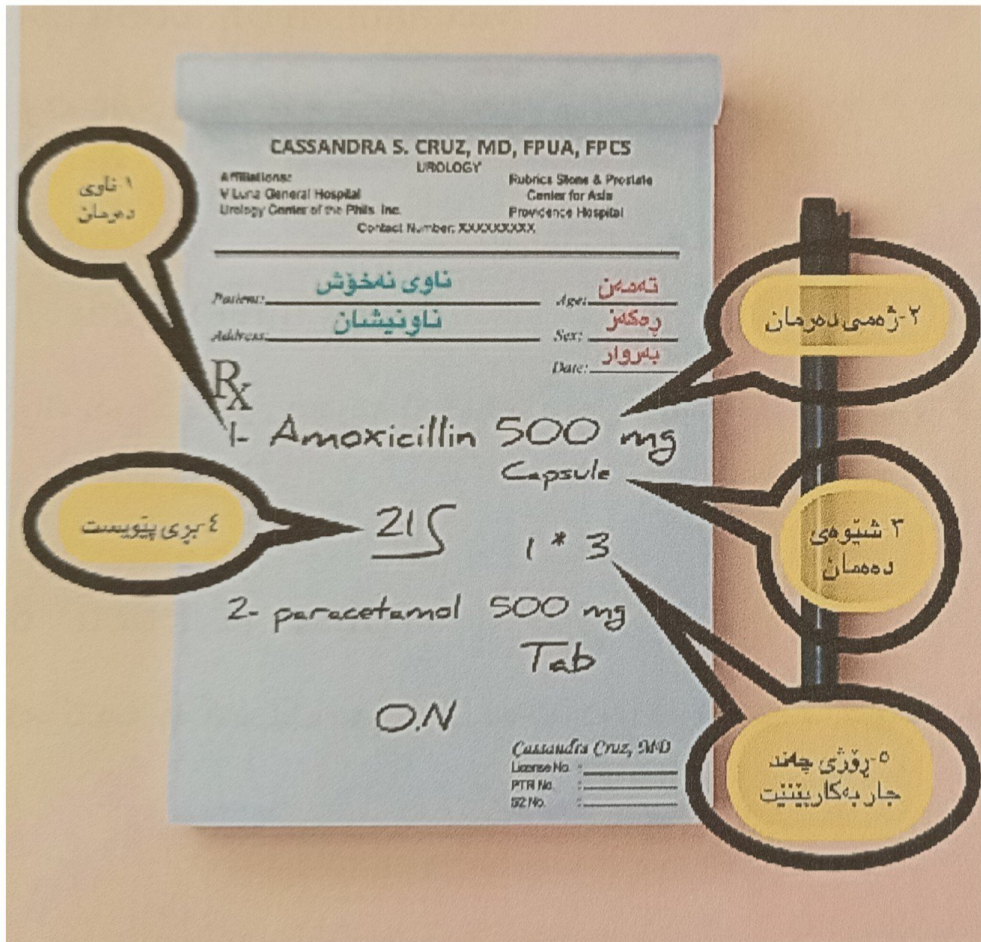 CASSANDRA S. CRUZ, MD, FPUA, FPCS
UROLOGY
Affiliations:
V Luna General Hospital
Urology Center of the Phils. Inc.
Rubrics Stone & Prostate
Center for Asia
Providence Hospital
Contact Number: XXXXXXXXX
Patient: ناوی نەخۆش
Age: تەمەن
Address: ناونیشان
Sex: ڕەگەز
Date: بەروار
Rx
1- Amoxicillin 500 mg
Capsule
21S
1 * 3
2- paracetamol 500 mg
Tab
O.N
Cassandra Cruz, MD
License No. :
PTR No. :
S2 No. :
١-ناوی
دەرمان
٢-ژەمی دەرمان
٣ شێوەی
دەمان
٤-بڕی پێویست
٥-ڕۆژی چەند
جار بەکاربێنێت